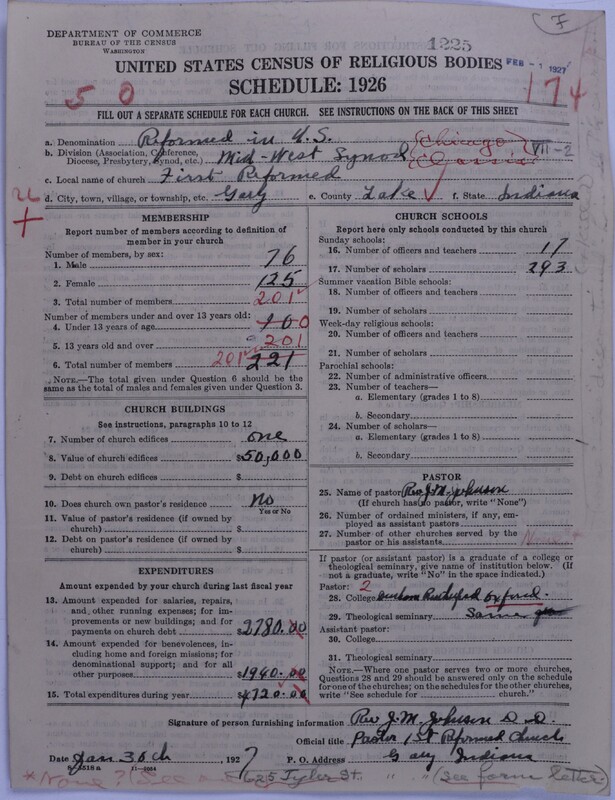 F
DEPARTMENT OF COMMERCE
BUREAU OF THE CENSUS
WASHINGTON
1225
FEB - 1 1927
UNITED STATES CENSUS OF RELIGIOUS BODIES
SCHEDULE: 1926
50
174
FILL OUT A SEPARATE SCHEDULE FOR EACH CHURCH. SEE INSTRUCTIONS ON THE BACK OF THIS SHEET
a. Denomination Reformed in U.S.
b. Division (Association, Conference, Diocese, Presbytery, Synod, etc.) Mid-West Synod (Chicago Classis) VII-2
c. Local name of church First Reformed
d. City, town, village, or township, etc. Gary e. County Lake f. State Indiana
MEMBERSHIP
Report number of members according to definition of
member in your church
Number of members, by sex:
1. Male 76
2. Female 125
3. Total number of members 201
Number of members under and over 13 years old:
4. Under 13 years of age 0
5. 13 years old and over 201
6. Total number of members 201 221
NOTE.—The total given under Question 6 should be
the same as the total of males and females given under Question 3.
CHURCH BUILDINGS
See instructions, paragraphs 10 to 12
7. Number of church edifices one
8. Value of church edifices $50,000
9. Debt on church edifices $
10. Does church own pastor's residence No
Yes or No
11. Value of pastor's residence (if owned by
church) $
12. Debt on pastor's residence (if owned by
church) $
EXPENDITURES
Amount expended by your church during last fiscal year
13. Amount expended for salaries, repairs,
and other running expenses; for im-
provements or new buildings; and for
payments on church debt $2780.00
14. Amount expended for benevolences, in-
cluding home and foreign missions; for
denominational support; and for all
other purposes 1940.00
15. Total expenditures during year $4720.00
CHURCH SCHOOLS
Report here only schools conducted by this church
Sunday schools:
16. Number of officers and teachers 17
17. Number of scholars 293
Summer vacation Bible schools:
18. Number of officers and teachers
19. Number of scholars
Week-day religious schools:
20. Number of officers and teachers
21. Number of scholars
Parochial schools:
22. Number of administrative officers
23. Number of teachers—
a. Elementary (grades 1 to 8)
b. Secondary
24. Number of scholars—
a. Elementary (grades 1 to 8)
b. Secondary
PASTOR
25. Name of pastor Rev J.M. Johnson
(If church has no pastor, write "None")
26. Number of ordained ministers, if any, em-
ployed as assistant pastors
27. Number of other churches served by the
pastor or his assistants
If pastor (or assistant pastor) is a graduate of a college or
theological seminary, give name of institution below. (If
not a graduate, write "No" in the space indicated.)
Pastor: 2
28. College Oxford
29. Theological seminary Same
Assistant pastor:
30. College
31. Theological seminary
NOTE.—Where one pastor serves two or more churches,
Questions 28 and 29 should be answered only on the schedule
for one of the churches; on the schedules for the other churches,
write "See schedule for church."
Signature of person furnishing information Rev J.M. Johnson D.D.
Official title Pastor 1st Reformed Church
Date Jan 30th 1927 P. O. Address Gary Indiana
8-1518a 11-2034
625 Tyler St. " " (See form letter.)